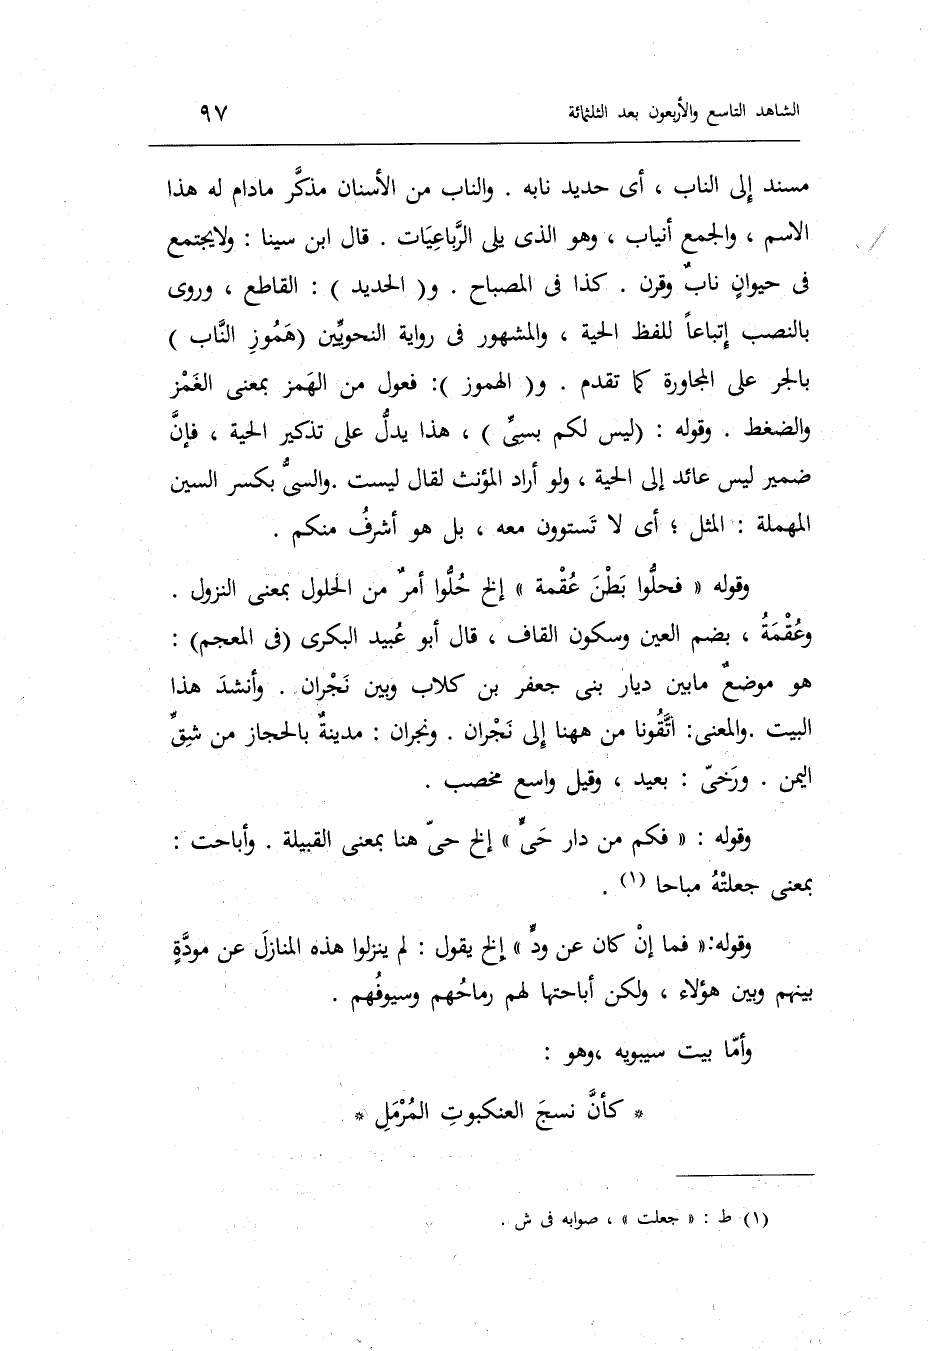 الشاهد التاسع والأربعون بعد الثلثمائة ٩٧
مسند إلى الناب ، أى حديد نابه . والناب من الأسنان مذكَّر مادام له هذا
الاسم ، والجمع أنياب ، وهو الذى يلى الرَّباعِيَات . قال ابن سينا : ولايجتمع
فى حيوانٍ نابٌ وقرن . كذا فى المصباح . و( الحديد ) : القاطع ، وروى
بالنصب إتباعاً للفظ الحية ، والمشهور فى رواية النحويِّين (هَمُوزِ النَّاب )
بالجر على المجاورة كما تقدم . و( الهموز ): فعول من الهَمز بمعنى الغَمْز
والضغط . وقوله : (ليس لكم بسىِّ ) ، هذا يدلُّ على تذكير الحية ، فإنَّ
ضمير ليس عائد إلى الحية ، ولو أراد المؤنث لقال ليست .والسىُّ بكسر السين
المهملة : المثل ؛ أى لا تَستوون معه ، بل هو أشرفُ منكم .
وقوله « فحلُّوا بَطْنَ عُقْمة » إلخ حُلُّوا أمرٌ من الحلول بمعنى النزول .
وعُقْمَةُ ، بضم العين وسكون القاف ، قال أبو عُبيد البكرى (فى المعجم) :
هو موضعٌ مابين ديار بنى جعفر بن كلاب وبين نَجْران . وأنشدَ هذا
البيت .والمعنى: اتَّقُونا من ههنا إلى نَجْران . ونجران : مدينةٌ بالحجاز من شِقِّ
اليمن . ورَخىّ : بعيد ، وقيل واسع مخصب .
وقوله : « فكم من دار حَىٍّ » إلخ حىّ هنا بمعنى القبيلة . وأباحت :
بمعنى جعلتْهُ مباحا (١) .
وقوله:« فما إنْ كان عن ودٍّ » إلخ يقول : لم ينزلوا هذه المنازلَ عن مودَّةٍ
بينهم وبين هؤلاء ، ولكن أباحتها لهم رماحُهم وسيوفُهم .
وأمّا بيت سيبويه ،وهو :
* كأنَّ نسجَ العنكبوتِ المُرْمَلِ *
(١) ط : « جعلت » ، صوابه فى ش .